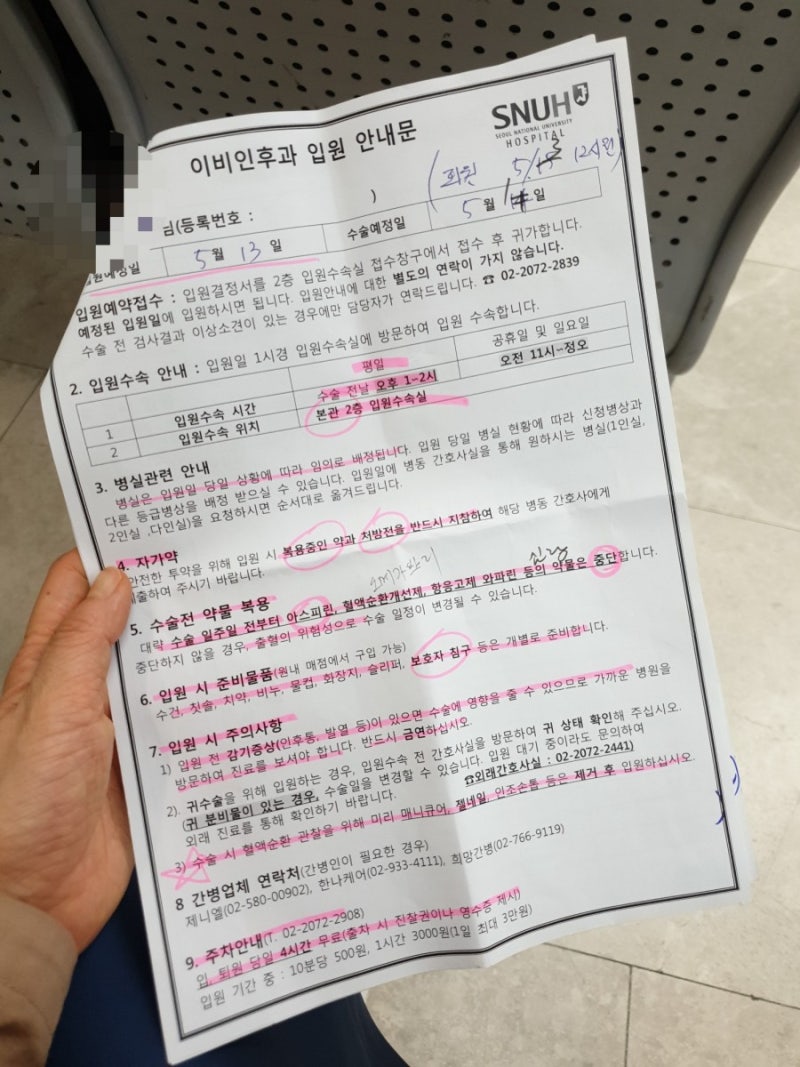 SNUH
SEOUL NATIONAL UNIVERSITY
HOSPITAL
이비인후과 입원 안내문
님(등록번호 : )
5월 13일 수술예정일 5월 일
입원예약접수 : 입원결정서를 2층 입원수속실 접수창구에서 접수 후 귀가합니다.
예정된 입원일에 입원하시면 됩니다. 입원안내에 대한 별도의 연락이 가지 않습니다.
수술 전 검사결과 이상소견이 있는 경우에만 담당자가 연락드립니다. ☎ 02-2072-2839
2. 입원수속 안내 : 입원일 1시경 입원수속실에 방문하여 입원 수속합니다.
평일 공휴일 및 일요일
1 입원수속 시간 수술 전날 오후 1~2시 오전 11시~정오
2 입원수속 위치 본관 2층 입원수속실
3. 병실관련 안내
병실은 입원일 당일 상황에 따라 임의로 배정됩니다. 입원 당일 병실 현황에 따라 신청병상과
다른 등급병상을 배정 받으실 수 있습니다. 입원일에 병동 간호사실을 통해 원하시는 병실(1인실,
2인실 ,다인실)을 요청하시면 순서대로 옮겨드립니다.
4. 자가약
안전한 투약을 위해 입원 시 복용중인 약과 처방전을 반드시 지참하여 해당 병동 간호사에게
제출하여 주시기 바랍니다.
오메가
5. 수술전 약물 복용
대략 수술 일주일 전부터 아스피린, 혈액순환개선제, 항응고제 와파린 등의 약물은 중단합니다.
중단하지 않을 경우, 출혈의 위험성으로 수술 일정이 변경될 수 있습니다.
6. 입원 시 준비물품(원내 매점에서 구입 가능)
수건, 칫솔, 치약, 비누, 물컵, 화장지, 슬리퍼, 보호자 침구 등은 개별로 준비합니다.
7. 입원 시 주의사항
1) 입원 전 감기증상(인후통, 발열 등)이 있으면 수술에 영향을 줄 수 있으므로 가까운 병원을
방문하여 진료를 보셔야 합니다. 반드시 금연하십시오.
2). 귀수술을 위해 입원하는 경우, 입원수속 전 간호사실을 방문하여 귀 상태 확인해 주십시오.
(귀 분비물이 있는 경우, 수술일을 변경할 수 있습니다. 입원 대기 중이라도 문의하여
외래 진료를 통해 확인하기 바랍니다. ☎외래간호사실 : 02-2072-2441)
3) 수술 시 혈액순환 관찰을 위해 미리 매니큐어, 젤네일, 인조손톱 등은 제거 후 입원하십시오.
8 간병업체 연락처(간병인이 필요한 경우)
제니엘(02-580-00902), 한나케어(02-933-4111), 희망간병(02-766-9119)
9. 주차안내(T. 02-2072-2908)
입, 퇴원 당일 4시간 무료(출차 시 진찰권이나 영수증 제시)
입원 기간 중 : 10분당 500원, 1시간 3000원(1일 최대 3만원)